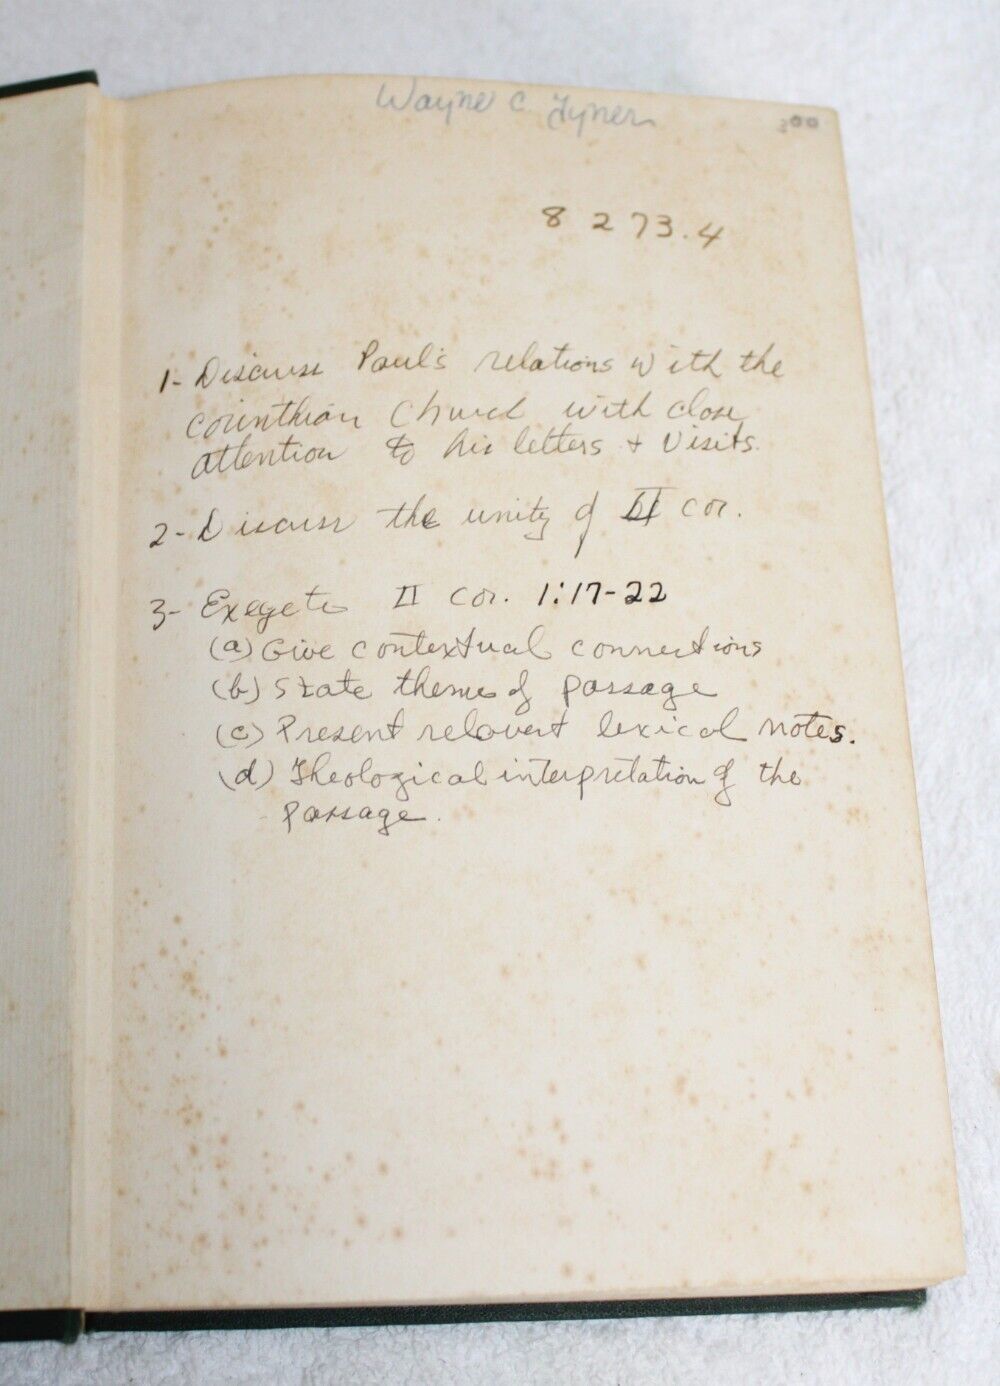 Wayne C. Tyner
300
8 273.4
1- Discuss Paul's relations with the
corinthian Church with close
attention to his letters + visits.
2- Discuss the unity of II cor.
3- Exegete II Cor. 1:17-22
(a) Give contextual connections
(b) State themes of passage
(c) Present relavent lexical notes.
(d) Theological interpretation of the
passage.